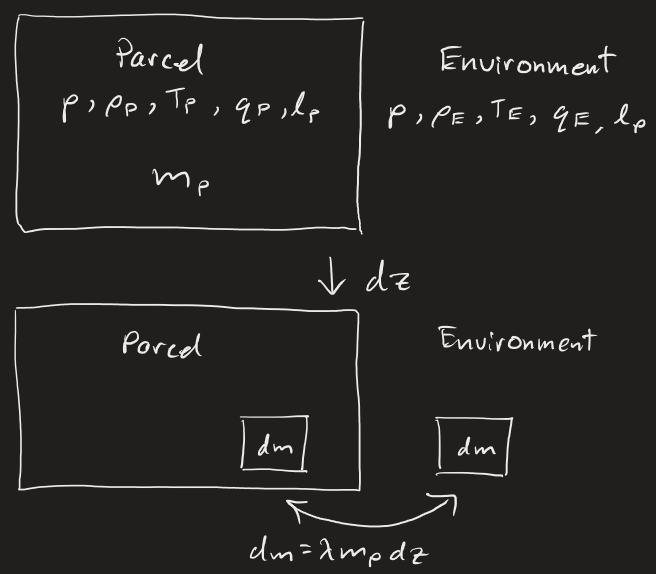 Parcel
p, ρ_P, T_P, q_P, l_P
m_P
Environment
p, ρ_E, T_E, q_E, l_P
↓ dz
Parcel
dm
Environment
dm
dm = λ m_P dz